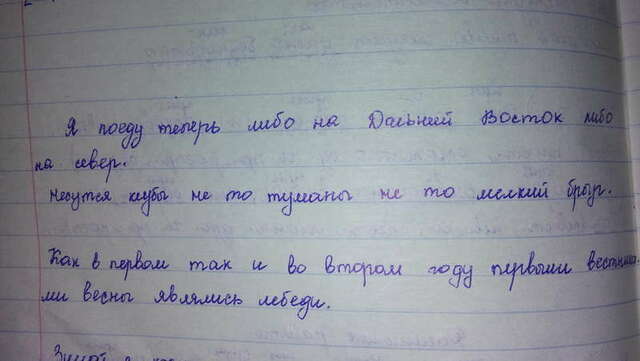 Я поеду теперь либо на Дальний Восток либо
на север.
Несутся клубы не то туманы не то мелкий брызг.
Как в первом так и во втором году первыми вестника
ми весны являлись лебеди.
Зимой